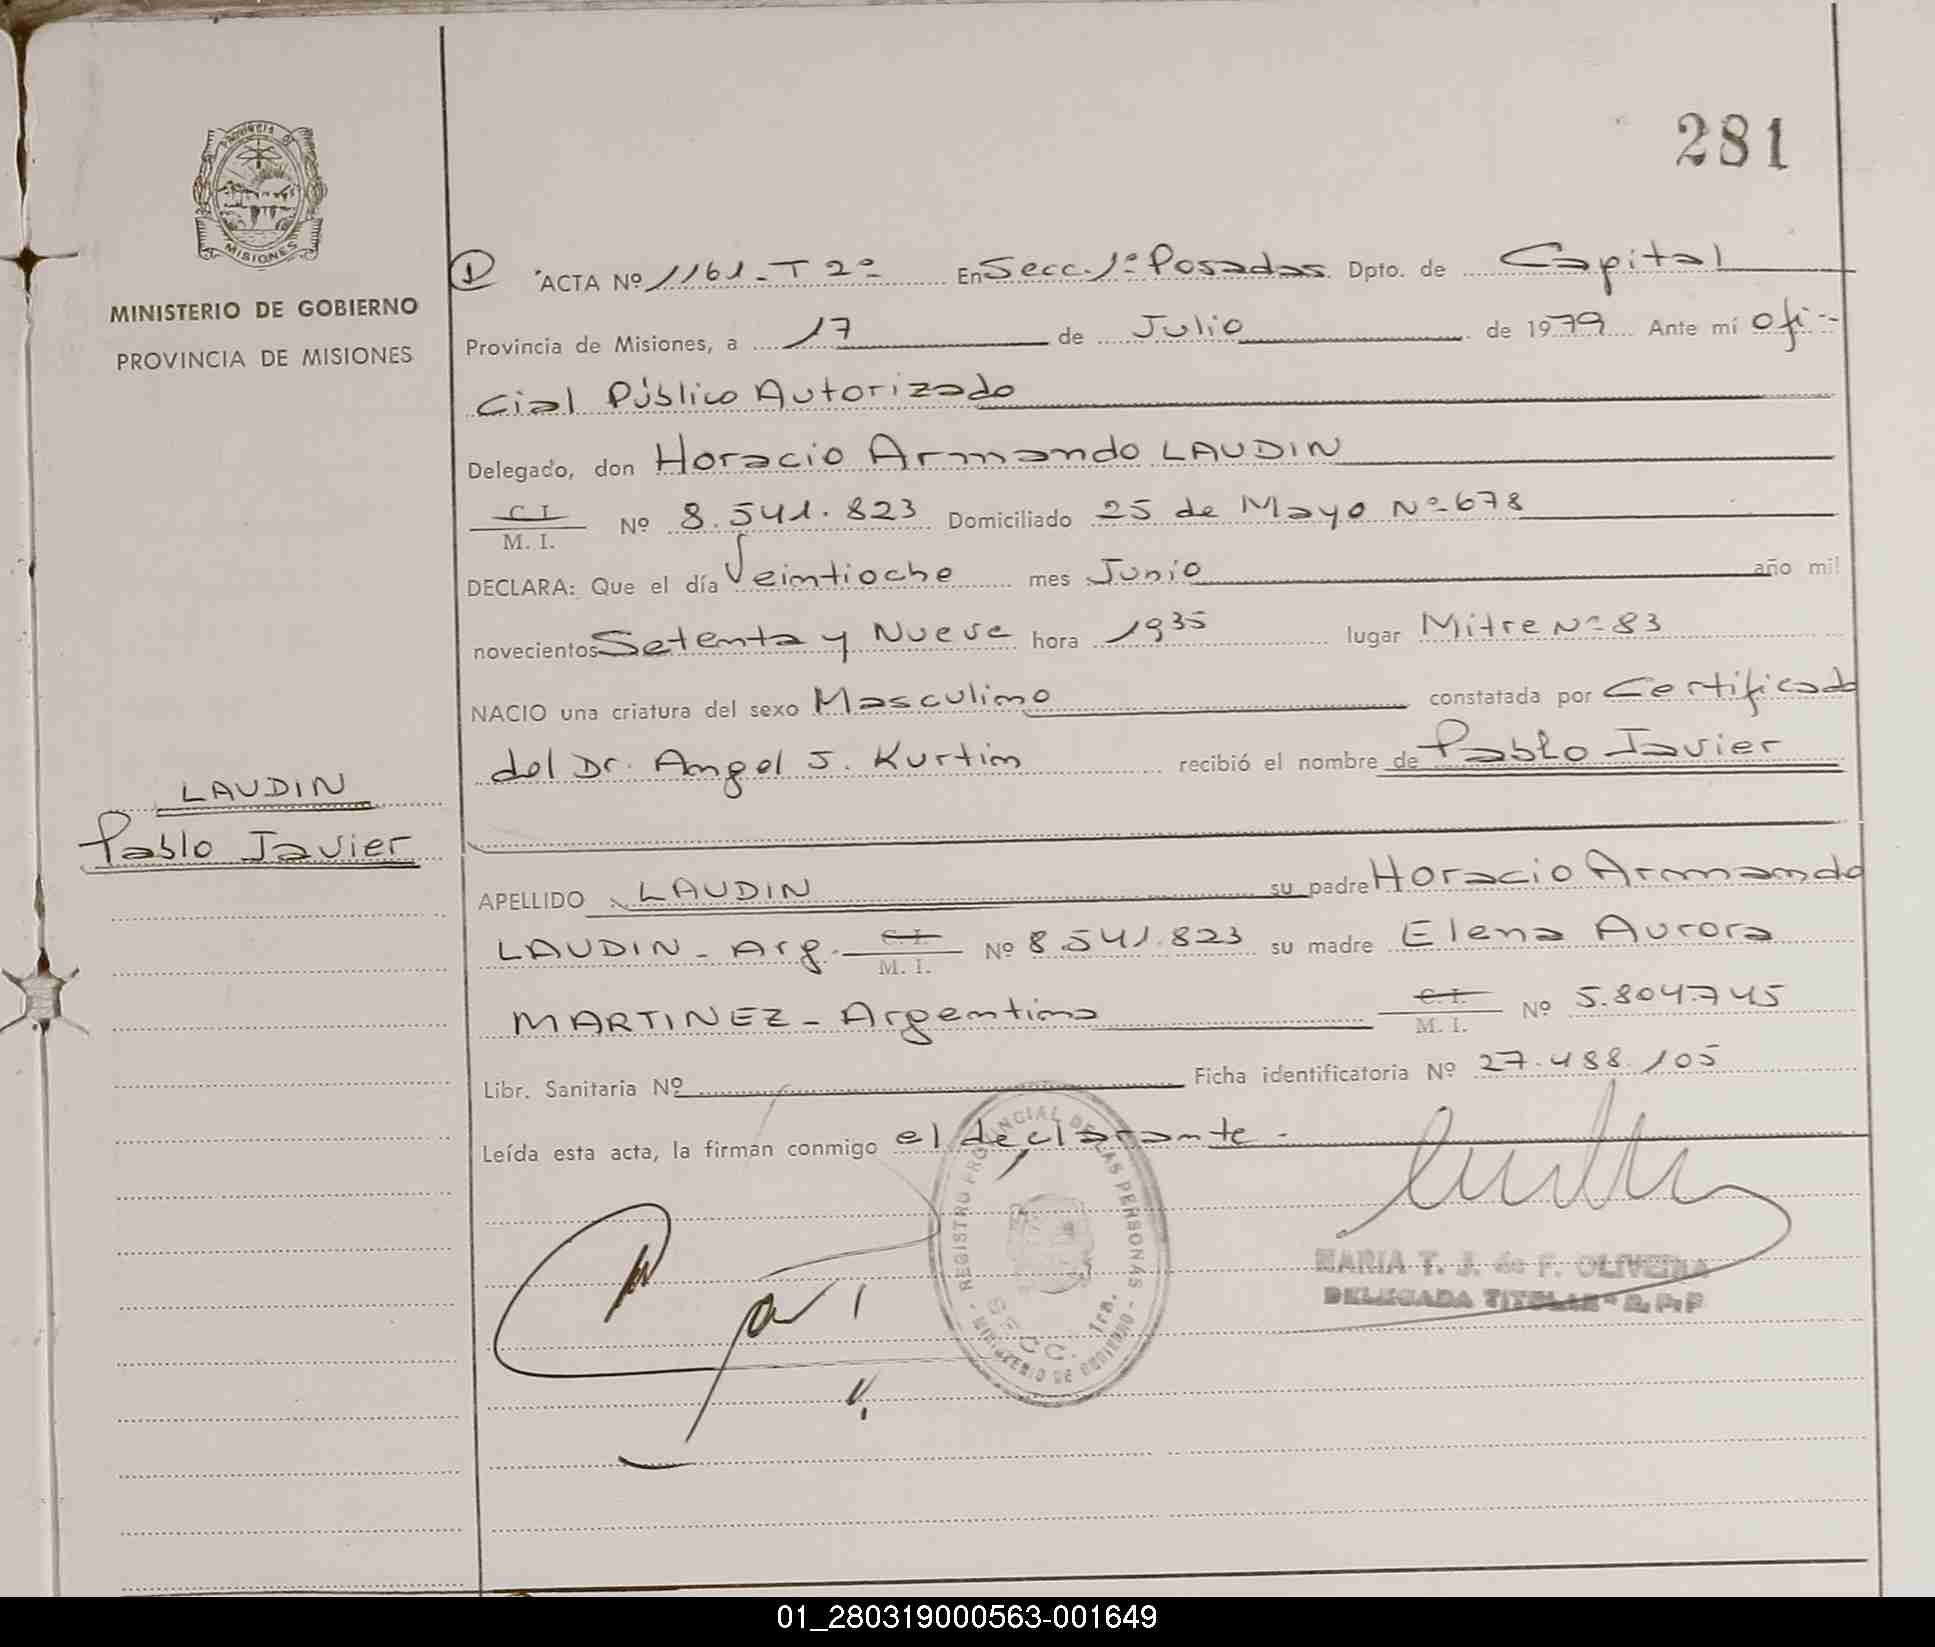 281
PROVINCIA DE
MISIONES
MINISTERIO DE GOBIERNO
PROVINCIA DE MISIONES
ACTA Nº 1161 - T 2º En Secc. 1ª Posadas Dpto. de Capital
Provincia de Misiones, a 17 de Julio de 1979 Ante mí Ofi-
cial Público Autorizado
Delegado, don Horacio Armando LAUDIN
C. I.
M. I. Nº 8.541.823 Domiciliado 25 de Mayo Nº 678
DECLARA: Que el día Veintiocho mes Junio año mil
novecientos Setenta y Nueve hora 1935 lugar Mitre Nº 83
NACIO una criatura del sexo Masculino constatada por Certificado
del Dr. Angel J. Kurtin recibió el nombre de Pablo Javier
LAUDIN
Pablo Javier
APELLIDO LAUDIN su padre Horacio Armando
LAUDIN - Arg. C. I.
M. I. Nº 8.541.823 su madre Elena Aurora
MARTINEZ - Argentina C. I.
M. I. Nº 5.804.745
Libr. Sanitaria Nº Ficha identificatoria Nº 27.488.105
Leída esta acta, la firman conmigo el declarante -
REGISTRO PROVINCIAL DE LAS PERSONAS
SECC. 1ra.
MINISTERIO DE GOBIERNO
MARIA T. J. de F. OLIVEIRA
DELEGADA TITULAR R. P. P
01_280319000563-001649